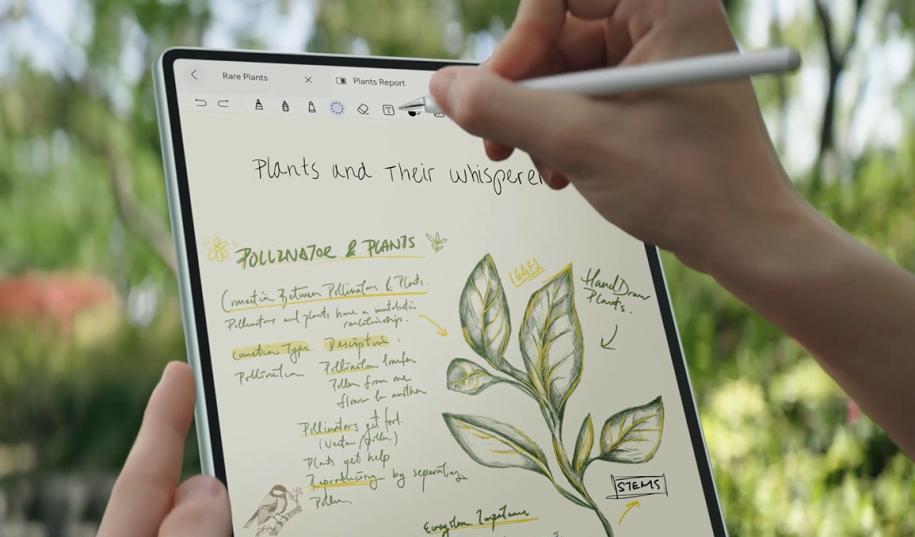 Rare Plants
Plants Report
Plants and Their whisperer
POLLINATOR & PLANTS
Connection Between Pollinators & Plants.
Pollinators and plants have a mutualistic
relationship.
Connection Type Description.
Pollination Pollination transfer
Pollen from one
flower to another
Pollinators get food.
(Nectar/Pollen)
Plants get help
Reproducing by separating
Pollen.
LEAFS
HandDraw
Plants.
STEMS
Ecosystem Importance